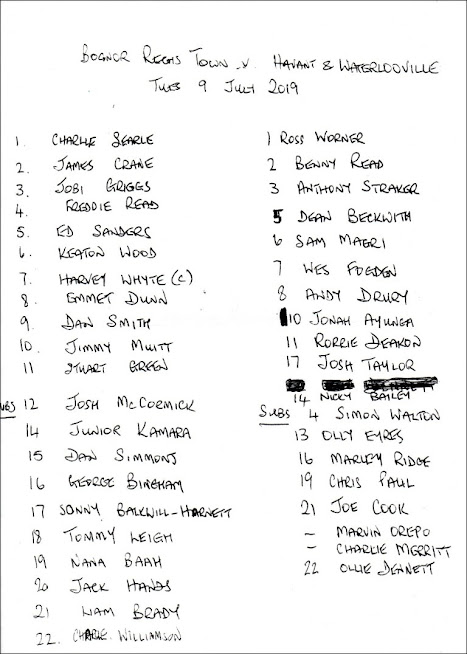 BOGNOR REGIS TOWN v. HAVANT & WATERLOOVILLE
TUES 9 JULY 2019
1. CHARLIE SEARLE
2. JAMES CRANE
3. JOBI GRIGGS
4. FREDDIE READ
5. ED SANDERS
6. KEATON WOOD
7. HARVEY WHYTE (C)
8. EMMET DUNN
9. DAN SMITH
10. JIMMY MUITT
11 STUART GREEN
SUBS 12 JOSH McCORMICK
14 JUNIOR KAMARA
15 DAN SIMMONS
16 GEORGE BINGHAM
17 SONNY BALKWILL-HARNETT
18 TOMMY LEIGH
19 NANA BAAH
20 JACK HANDS
21 LIAM BRADY
22. CHARLIE WILLIAMSON
1 ROSS WORNER
2 BENNY READ
3 ANTHONY STRAKER
5 DEAN BECKWITH
6 SAM MAGRI
7 WES FOGDEN
8 ANDY DRURY
10 JONAH AYUNGA
11 RORRIE DEAKON
17 JOSH TAYLOR
14 NICKY BAILEY
SUBS 4 SIMON WALTON
13 OLLY EYRES
16 MARLEY RIDGE
19 CHRIS PAUL
21 JOE COOK
- MARVIN OREPO
- CHARLIE MERRITT
22 OLLIE DENNETT